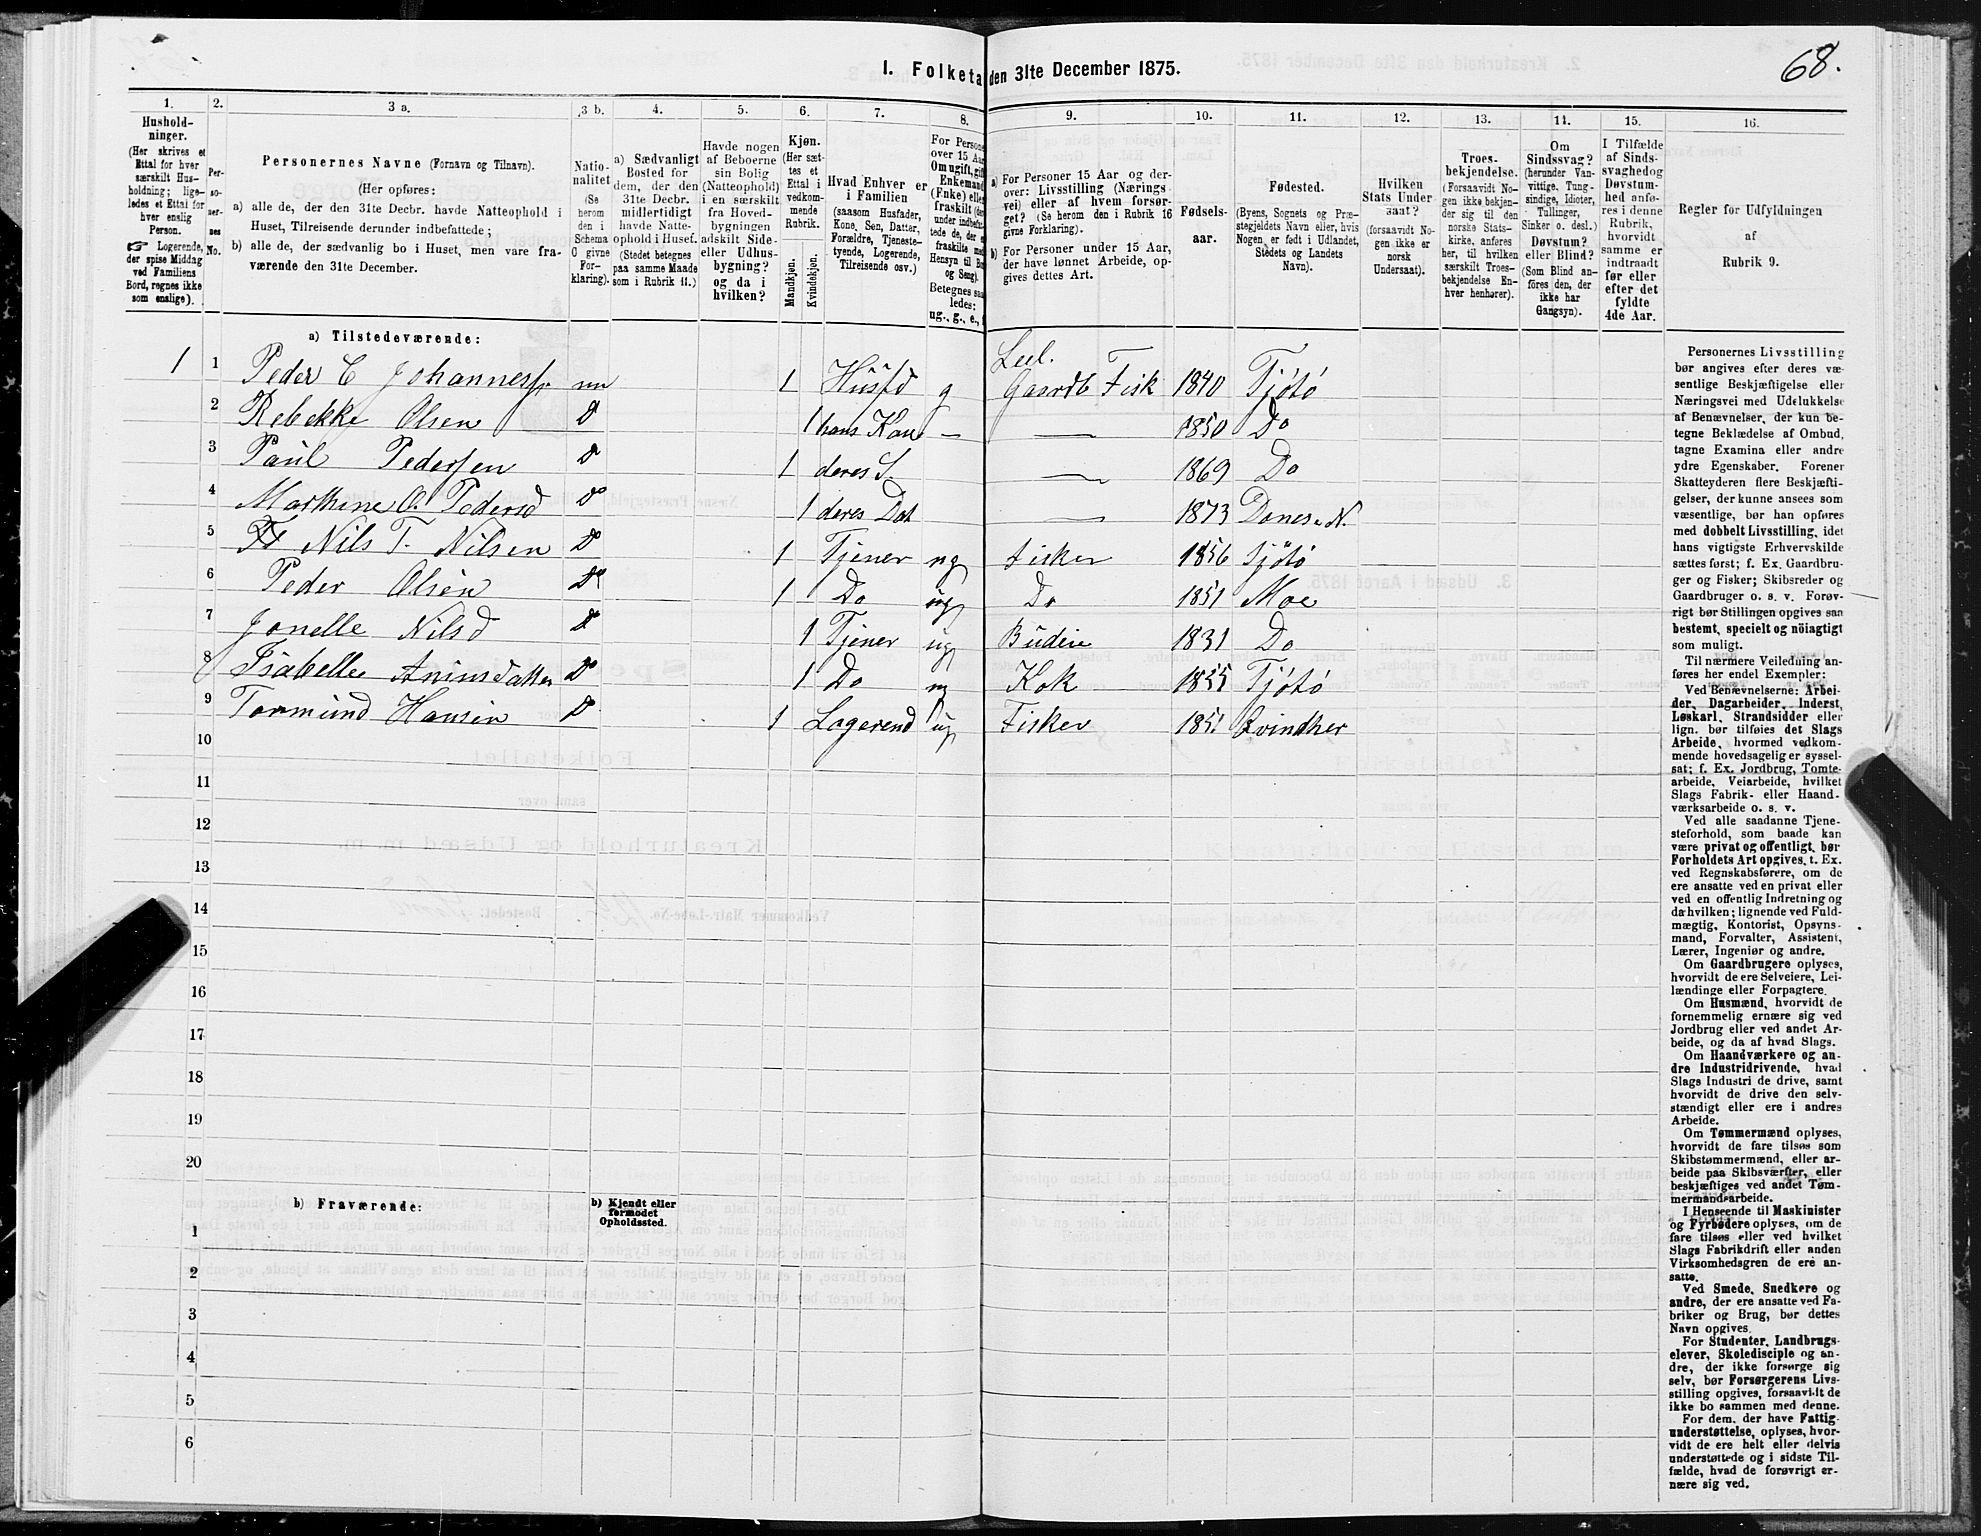 I. Folketa den 31te December 1875.
68.
1. 2. 3 a. 3 b. 4. 5. 6. 7. 8. 9. 10. 11. 12. 13. 14. 15. 16.
Hushold-
ninger.
(Her skrives et
Ettal for hver
særskilt Hus-
holdning; lige-
ledes et Ettal for
hver enslig
Person.
☞ Logerende,
der spise Middag
ved Familiens
Bord, regnes ikke
som enslige).
Per-
so-
ner-
nes
No.
Personernes Navne (Fornavn og Tilnavn).
(Her opføres:
a) alle de, der den 31te Decbr. havde Natteophold i
Huset, Tilreisende derunder indbefattede;
b) alle de, der sædvanlig bo i Huset, men vare fra-
værende den 31te December.
Natio-
nalitet
(Se
herom
den i
Schema
O givne
For-
klaring).
a) Sædvanligt
Bosted for
dem, der den
31te Decbr.
midlertidigt
havde Natte-
ophold i Huset.
(Stedet betegnes
paa samme Maade
som i Rubrik 11.)
Havde nogen
af Beboerne
sin Bolig
(Natteophold)
i en særskilt
fra Hoved-
bygningen
adskilt Side-
eller Udhus-
bygning?
og da i
hvilken?
Kjøn.
(Her sæt-
tes et
Ettal i
vedkom-
mende
Rubrik.
Mandkjøn.
Kvindekjøn.
Hvad Enhver er
i Familien
(saasom Husfader,
Kone, Søn, Datter,
Forældre, Tjeneste-
tyende, Logerende,
Tilreisende osv.)
For Persone
over 15 Aar
Om ugift, gift
Enkemand
(Enke) eller
fraskilt
under indbefat-
tede de, der e
fraskilte me
Hensyn til Bo
og Seng).
Betegnes saa
ledes:
ug., g., e.,
a) For Personer 15 Aar og der-
over: Livsstilling (Nærings
vei) eller af hvem forsør-
get? (Se herom den i Rubrik 16
givne Forklaring).
b) For Personer under 15 Aar,
der have lønnet Arbeide, op-
gives dettes Art.
Fødsels-
aar.
Fødested.
(Byens, Sognets og Præ-
stegjeldets Navn eller, hvis
Nogen er født i Udlandet,
Stedets og Landets
Navn).
Hvilken
Stats Under
saat?
(forsaavidt No-
gen ikke er
norsk
Undersaat).
Troes-
bekjendelse.
(Forsaavidt No-
gen ikke bekjen-
der sig til den
norske Stats-
kirke, anføres
her, til hvilken
særskilt Troes-
bekjendelse En-
hver henhører).
Om
Sindssvag?
(herunder Van-
vittige, Tung-
sindige, Idioter,
Tullinger,
Sinker o. desl.)
Døvstum?
eller Blind?
(Som Blind an-
føres den, der
ikke har
Gangsyn).
I Tilfælde
af Sinds-
svaghed og
Døvstum-
hed anfø-
res i denne
Rubrik,
hvorvidt
samme er
indtraadt
før eller
efter det
fyldte
4de Aar.
Regler for Udfyldningen
af
Rubrik 9.
a) Tilstedeværende:
1 1 Peder C Johannessn nn 1 Husfd g Leel. Gaardb Fisk 1840 Tjötö
2 Rebekke Olsen D 1 hans Kone — — 1850 Do
3 Paul Pedersen D 1 deres S. — 1869 Do
4 Marthine O. Pedersd D 1 deres Dat — 1873 Dones N.
5 Nils T. Nilsen D 1 Tjener ug Fisker 1856 Tjötö
6 Peder Olsen D 1 Do ug Do 1851 Moe
7 Jonelle Nilsd D 1 Tjener ug Budeie 1831 Do
8 Isabelle D 1 Do ug Kok 1855 Tjötö
9 Tormund Hansen D 1 Logerend ug Fisker 1851 Qvindher
10
11
12
13
14
15
16
17
18
19
20
b) Fraværende:
b) Kjendt eller
formodet
Opholdssted.
1
2
3
4
5
6
Personernes Livsstilling
bør angives efter deres væ-
sentlige Beskjæftigelse eller
Næringsvei med Udelukkelse
af Benævnelser, der kun be-
tegne Beklædelse af Ombud,
tagne Examina eller andre
ydre Egenskaber. Forener
Skatteyderen flere Beskjæfti-
gelser, der kunne ansees som
væsentlige, bør han opføres
med dobbelt Livsstilling, idet
hans vigtigste Erhvervskilde
sættes først; f. Ex. Gaardbru-
ger og Fisker; Skibsreder og
Gaardbruger o. s. v. Forøv-
rigt bør Stillingen opgives saa
bestemt, specielt og nöiagtigt
som muligt.
Til nærmere Veiledning an-
føres her endel Exempler:
Ved Benævnelserne: Arbei-
der, Dagarbeider, Inderst,
Løskarl, Strandsidder eller
lign. bør tilføies det Slags
Arbeide, hvormed vedkom-
mende hovedsagelig er syssel-
sat; f. Ex. Jordbrug, Tomte-
arbeide, Veiarbeide, hvilket
Slags Fabrik- eller Haand-
værksarbeide o. s. v.
Ved alle saadanne Tjene-
steforhold, som baade kan
være privat og offentligt, bør
Forholdets Art opgives, t. Ex.
ved Regnskabsførere, om de
ere ansatte ved en privat eller
ved en offentlig Indretning og
da hvilken; lignende ved Fuld-
mægtig, Kontorist, Opsyns-
mand, Forvalter, Assistent,
Lærer, Ingeniør og andre.
Om Gaardbrugere oplyses,
hvorvidt de ere Selveiere, Lei-
lændinge eller Forpagtere.
Om Husmænd, hvorvidt de
fornemmelig ernære sig ved
Jordbrug eller ved andet Ar-
beide, og da af hvad Slags.
Om Haandværkere og an-
dre Industridrivende, hvad
Slags Industri de drive, samt
hvorvidt de drive den selv-
stændigt eller ere i andres
Arbeide.
Om Tømmermænd oplyses,
hvorvidt de fare tilsøs som
Skibstømmermænd, eller ar-
beide paa Skibsværfter, eller
beskjæftiges ved andet Tøm-
mermandsarbeide.
I Henseende til Maskinister
og Fyrbødere oplyses, om de
fare tilsøs eller ved hvilket
Slags Fabrikdrift eller anden
Virksomhedsgren de ere an-
satte.
Ved Smede, Snedkere og
andre, der ere ansatte ved Fa-
briker og Brug, bør dettes
Navn opgives.
For Studenter, Landbrugs-
elever, Skoledisciple og an-
dre, der ikke forsørge sig
selv, bør Forsørgerens Livs-
stilling opgives, forsaavidt de
ikke bo sammen med denne.
For dem, der have Fattig-
understøttelse, oplyses, hvor-
vidt de ere helt eller delvis
understøttede og i sidste Til-
fælde, hvad de forøvrigt er-
nære sig ved.